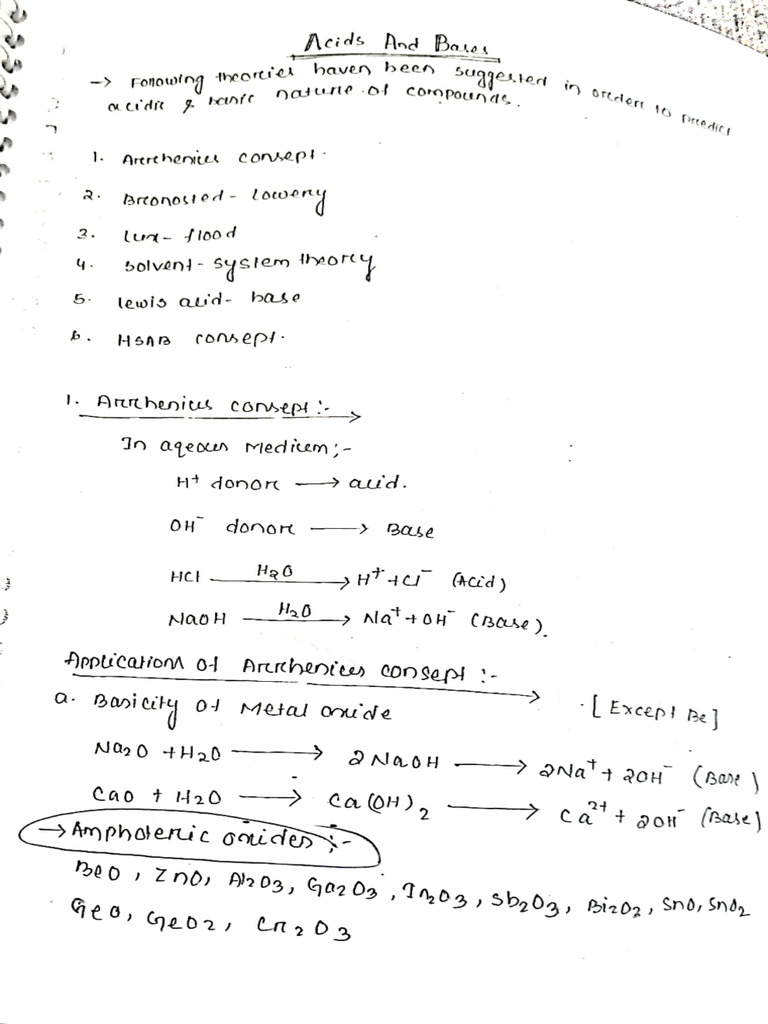 Acids And Bases
→ Following theories haven been suggested in order to predict
acidic & basic nature of compounds.
1. Arrhenius consept.
2. Bronosted - lowery
3. lux - flood
4. solvent - system theory
5. lewis acid - base
6. HSAB consept.
1. Arrhenius consept :-
In aqeous Medium ;-
H⁺ donor → acid.
OH⁻ donor → Base
HCl —H₂O→ H⁺ + Cl⁻ (Acid)
NaOH —H₂O→ Na⁺ + OH⁻ (Base).
Application of Arrhenius consept :-
a. Basicity of Metal oxide · [Except Be]
Na₂O + H₂O → 2NaOH → 2Na⁺ + 2OH⁻ (Base)
CaO + H₂O → Ca(OH)₂ → Ca²⁺ + 2OH⁻ (Base)
→ Amphoteric oxides ;-
BeO, ZnO, Al₂O₃, Ga₂O₃, In₂O₃, Sb₂O₃, Bi₂O₃, SnO, SnO₂
GeO, GeO₂, Cr₂O₃